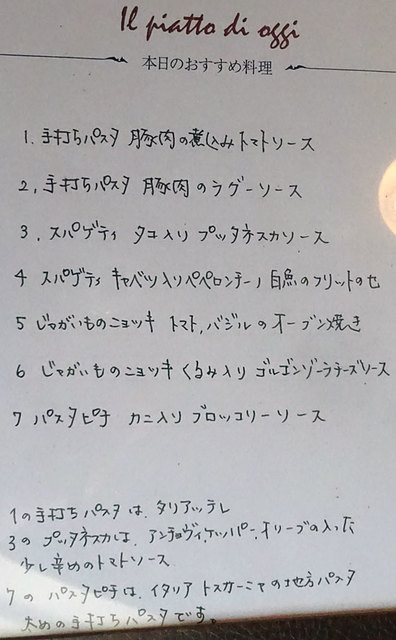 Il piatto di oggi
本日のおすすめ料理
1. 手打ちパスタ 豚肉の煮込みトマトソース
2. 手打ちパスタ 豚肉のラグーソース
3. スパゲティ タコ入り プッタネスカソース
4 スパゲティ キャベツ入りペペロンチーノ 白魚のフリットのせ
5 じゃがいものニョッキ トマト,バジルのオーブン焼き
6 じゃがいものニョッキ くるみ入り ゴルゴンゾーラチーズソース
7 パスタピチ カニ入り ブロッコリーソース
1の手打ちパスタは、タリアッテレ
3の プッタネスカは、アンチョヴィ,ケッパー,オリーブの入った
少し辛めのトマトソース
7の パスタピチは、イタリア トスカーニャの地方パスタ
太めの手打ちパスタです。